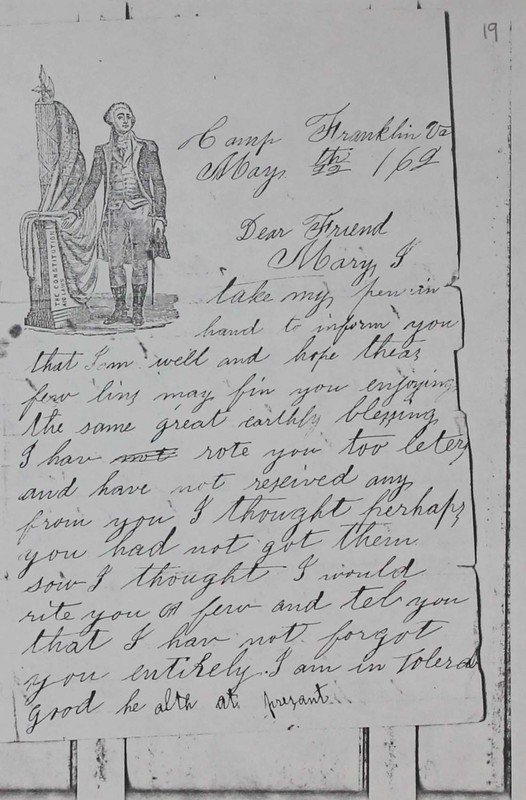 19
Camp Franklin Va
May 22th 162
Dear Friend
Mary, I
take my pen in
hand to inform you
that I am well and hope theas
few lins may fin you enjoying
the same great earthly blessing
I hav not rote you too leters
and have not reseived any
from you I thought perhaps
you had not got them
sow I thought I would
rite you a few and tel you
that I hav not forgot
you entirely I am in
good he alth at prezant
THE CONSTITUTION